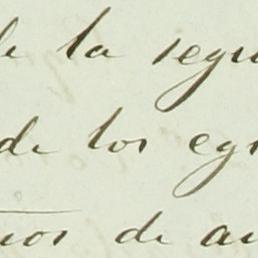 de la segu
de los egr
nos de au